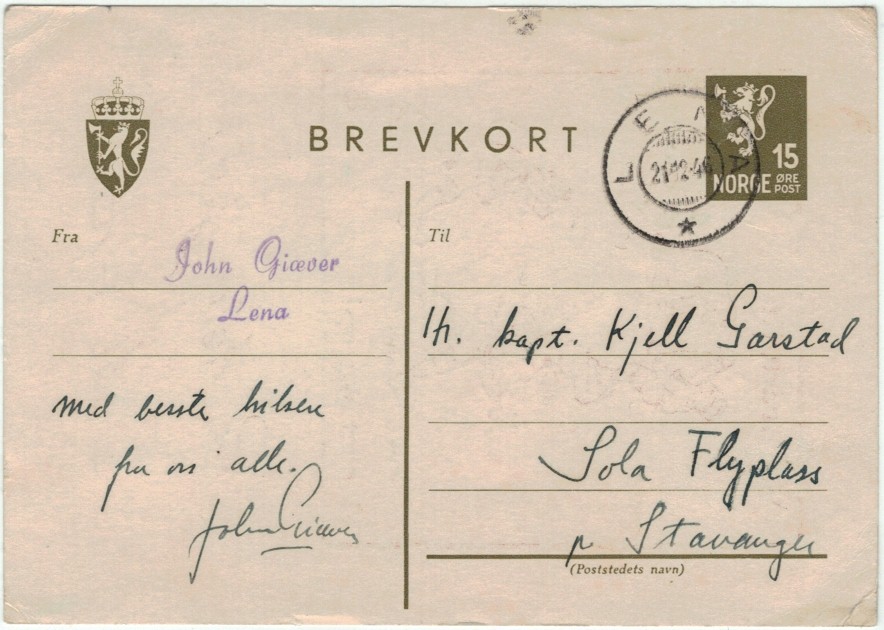 BREVKORT
LENA
21 12-46
15
NORGE ØRE
POST
Fra
John Giæver
Lena
med beste hilsen
fra oss alle.
John Giæver
Til
Hr. kapt. Kjell Garstad
Sola Flyplass
pr Stavanger
(Poststedets navn)